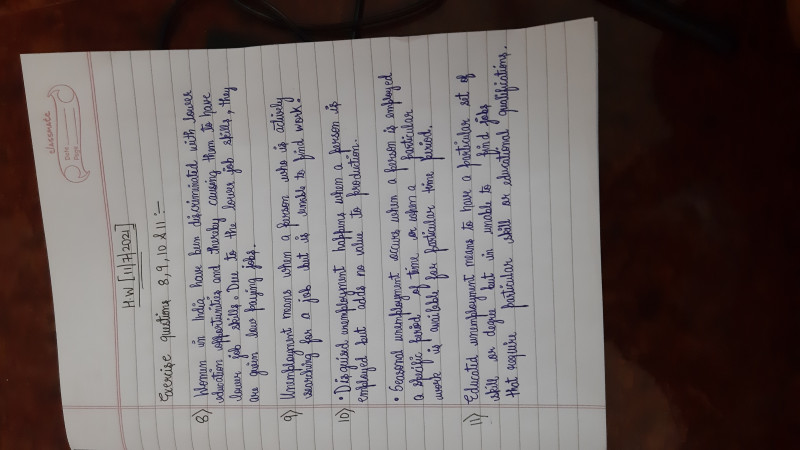 classmate
Date
Page
H.W [11/7/2021]
Exercise qustions 8,9,10 & 11 :-
8) Women in India have been discriminated with lower
education opportunities and thereby causing them to have
lower job skills. Due to the lower job skills, they
are given low paying jobs.
9) Unemployment means when a person who is actively
searching for a job but is unable to find work.
10) • Disguised unemployment happens when a person is
employed but adds no value to production.
• Seasonal unemployment occurs when a person is employed
a specific period of time or when a particular
work is available for particular time period.
11) Educated unemployment means to have a particular set of
skill or degree but in unable to find jobs
that require particular skill or educational qualifications.